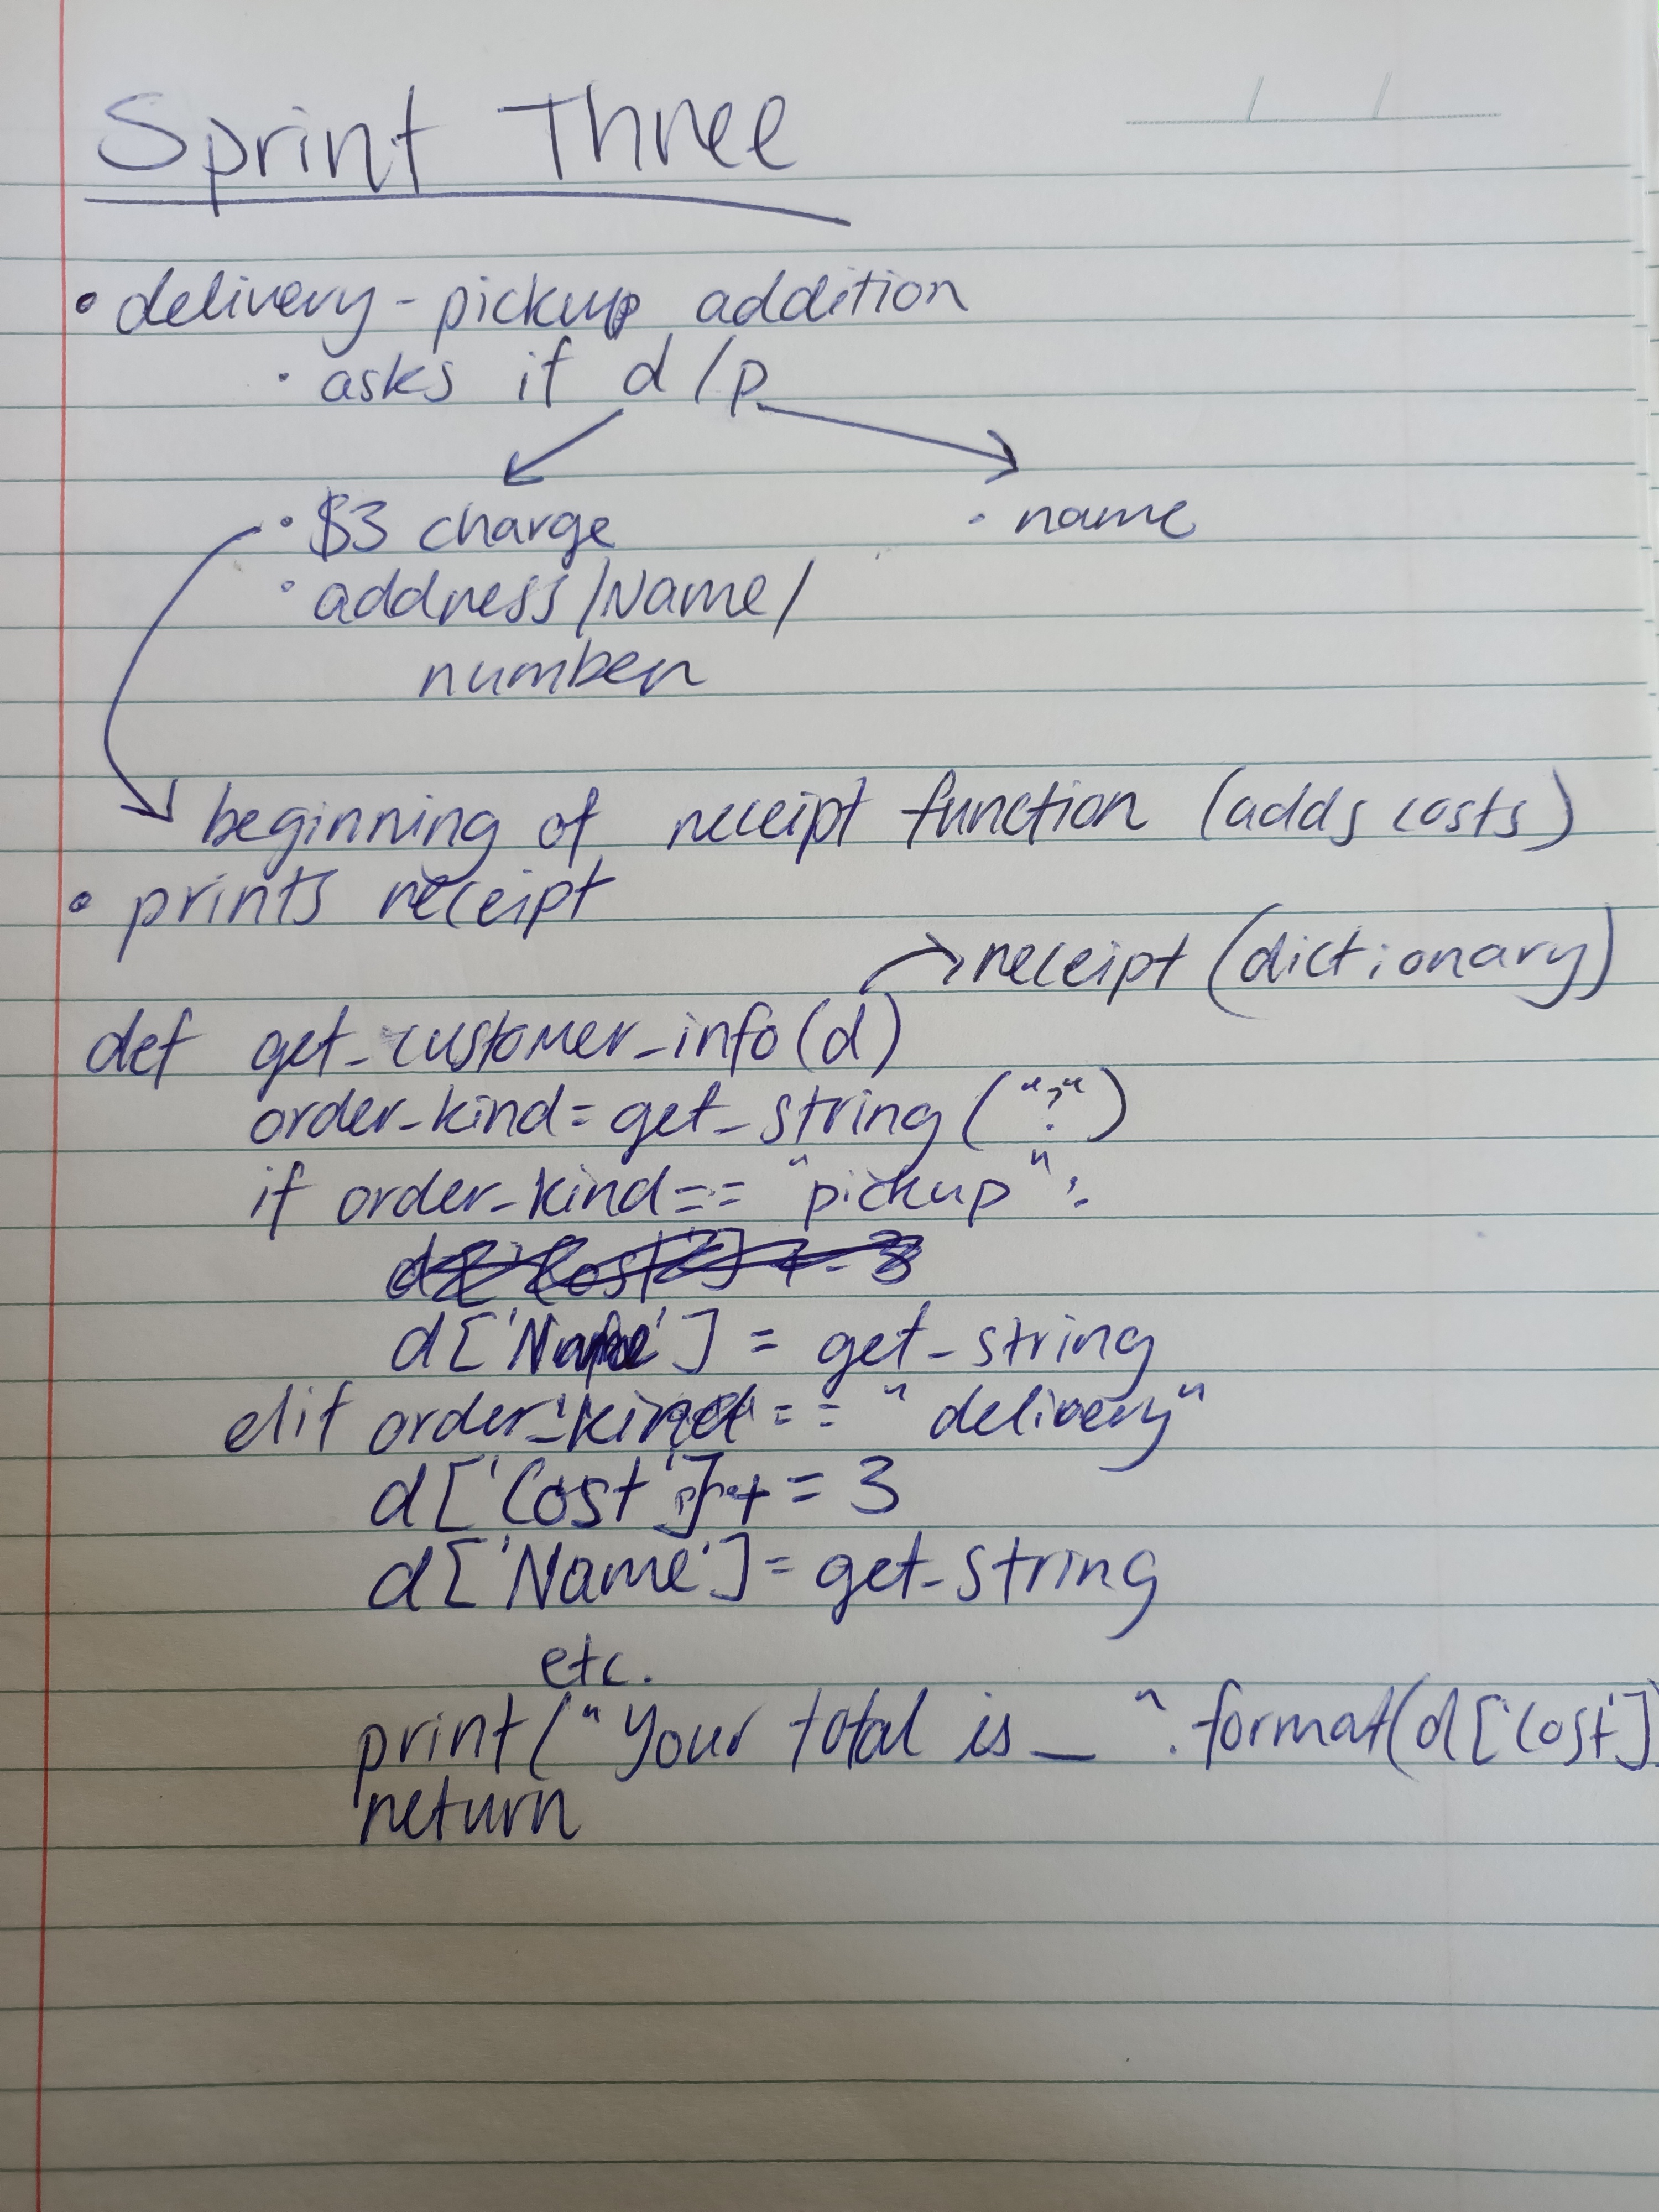 Sprint Three
• delivery - pickup addition
• asks if d/p
• $3 charge • name
• address/Name/
number
beginning of receipt function (adds costs)
• prints receipt
receipt (dictionary)
def get_customer_info(d)
order_kind = get_string("?")
if order_kind == "pickup":
d['Cost'] += 3
d['Name'] = get_string
elif order_kind == "delivery"
d['Cost'] += 3
d['Name'] = get_string
etc.
print("Your total is _ ".format(d['Cost']
return